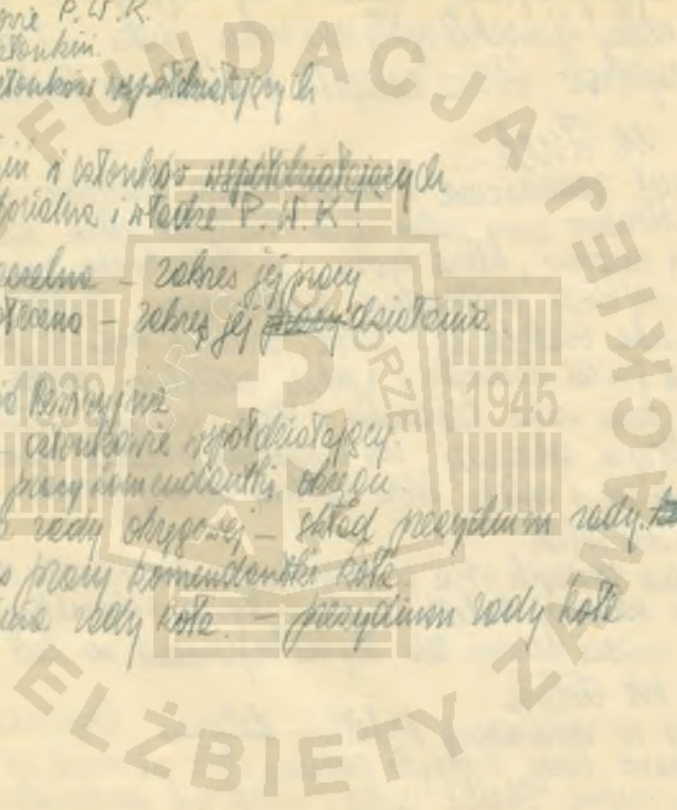 P. W. K.
członkiń
członków współdziałających
i członków współdziałających
i władze P. W. K.
– zakres jej pracy
– zakres jej pracy działania
Rewizyjna
– członkowie współdziałający.
pracy komendantki okręgu.
rady okręgowej – skład prezydium rady.
pracy komendantki koła
rady koła. – prezydium rady koła
FUNDACJA JEJ
ELŻBIETY ZAWACKIEJ
1939
1945